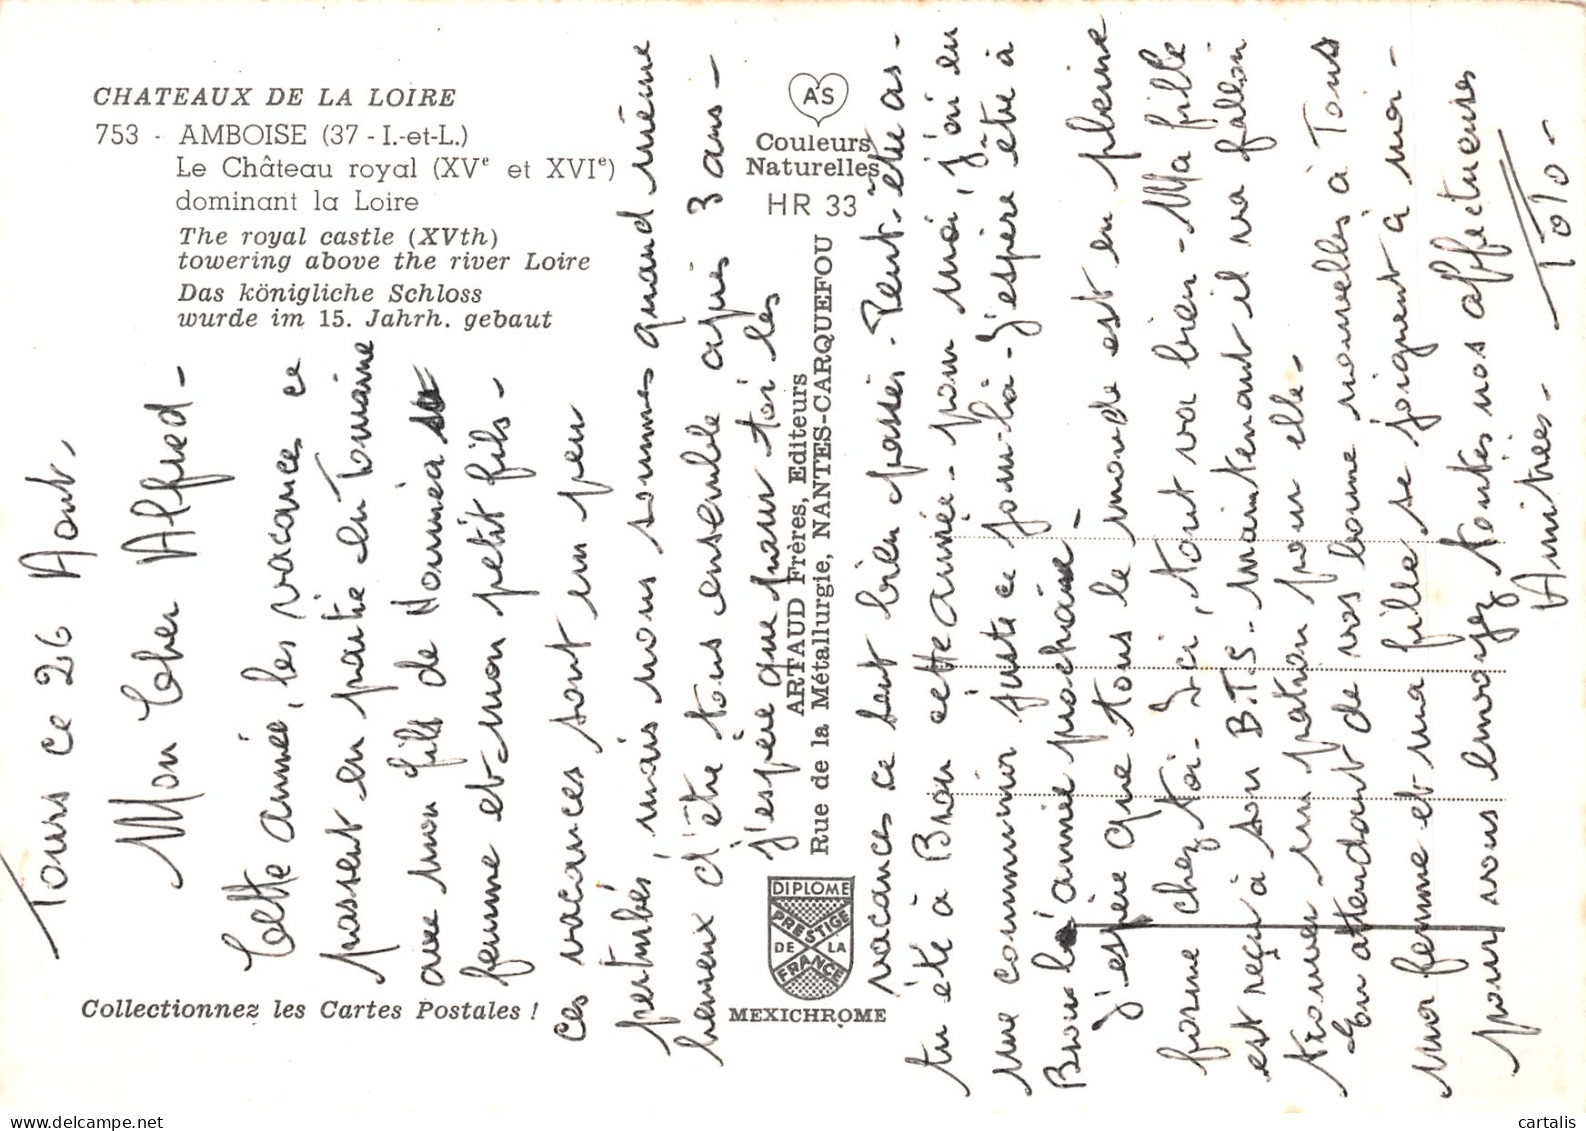 CHATEAUX DE LA LOIRE
753 - AMBOISE (37 - I.-et-L.)
Le Château royal (XVe et XVIe)
dominant la Loire
The royal castle (XVth)
towering above the river Loire
Das königliche Schloss
wurde im 15. Jahrh. gebaut
AS
Couleurs
Naturelles
HR 33
ARTAUD Frères, Editeurs
Rue de la Métallurgie, NANTES-CARQUEFOU
DIPLOME
PRESTIGE
DE LA
FRANCE
MEXICHROME
Collectionnez les Cartes Postales !
Tours ce 26 Aout -
Mon Cher Alfred -
Cette année, les vacances ce
passent en partie en Touraine
avec mon fils de Nouméa sa
femme et mon petit fils -
Ces vacances sont un peu
perturbés, mais nous sommes quand même
heureux d'être tous ensemble après 3 ans -
j'espère que pour toi les
vacances ce sont bien passés - Peut-être as-
tu été à Bron cette année - pour moi, j'ai eu
une communion juste ce jour-là - J'espère être à
Bron l'année prochaine -
J'espère que tous le monde est en pleine
forme chez toi - Ici, tout va bien - Ma fille
est reçu à son B.T.S - maintenant il va falloir
trouver un patron pour elle -
En attendant de vos bonne nouvelles à Tous
mon femme et ma fille se joignent à moi -
pour vous envoyez toutes nos affectueuses
Amitiés - Tolo -